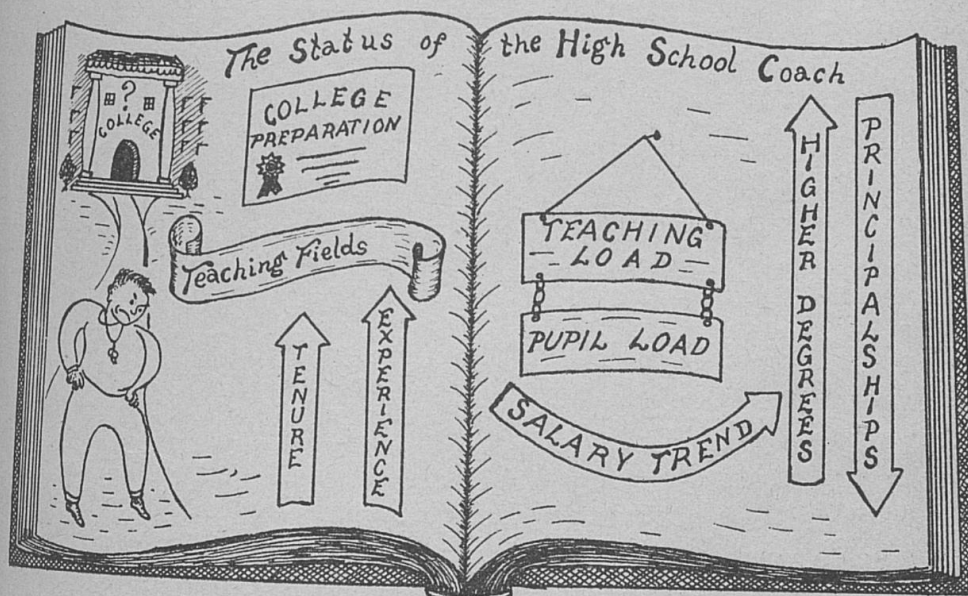 The Status of the High School Coach
?
COLLEGE
COLLEGE
PREPARATION
Teaching Fields
TENURE
EXPERIENCE
TEACHING
LOAD
PUPIL LOAD
SALARY TREND
HIGHER DEGREES
PRINCIPALSHIPS